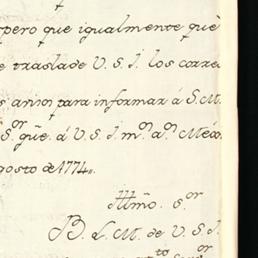 spero que igualmente què
e traslade V. S. I. los corre
s avisos para informar á S. M.
S.ᵒʳ gũe. á V. S. I. m.ˢ a.ˢ Méxᵒ
gosto de 1774.
Illmo. S.ᵒʳ
B. L. M. de V. S. I.